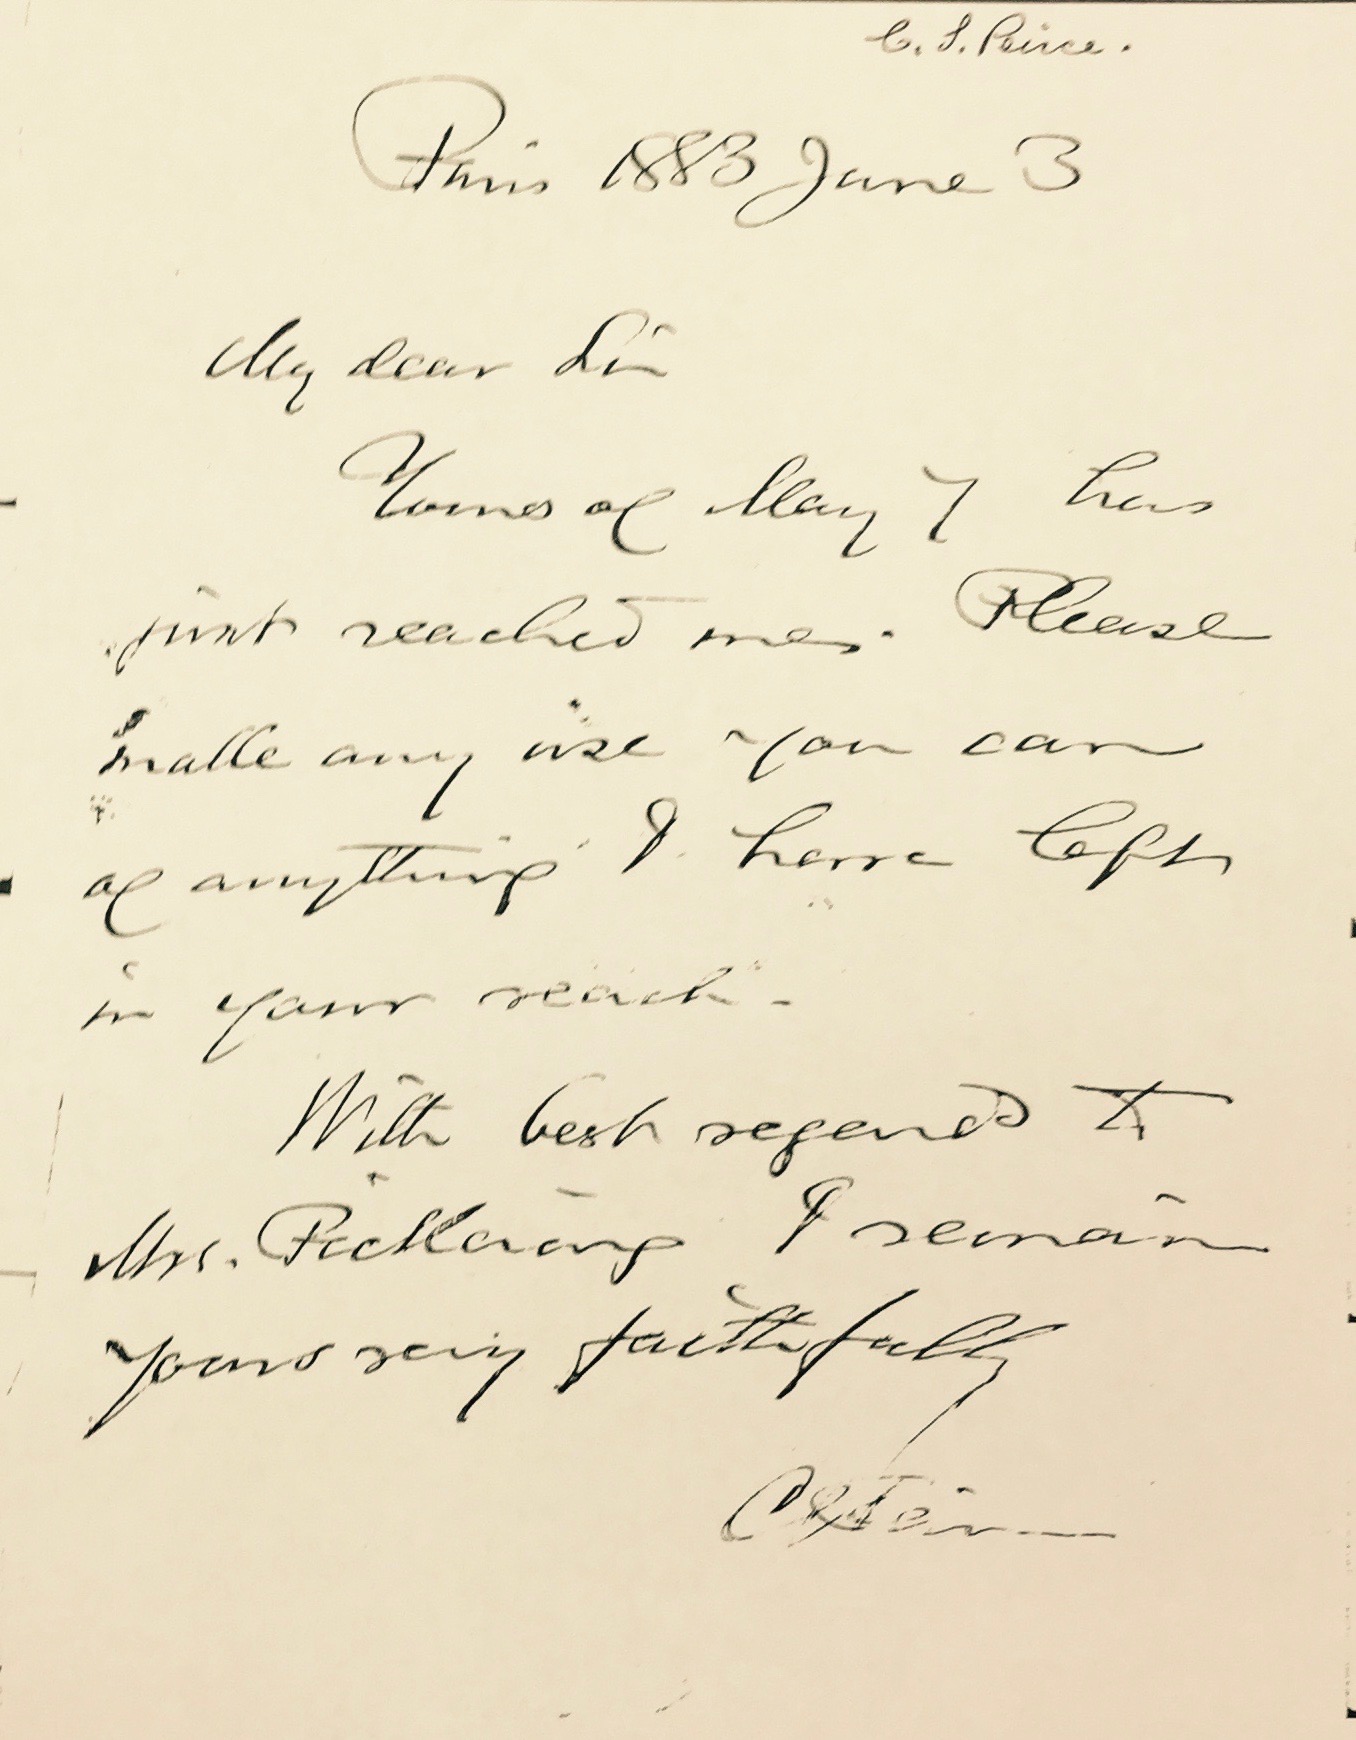 C. S. Peirce.
Paris 1883 June 3
My dear Sir
Yours of May 7 has
just reached me. Please
make any use you can
of anything I have left
in your reach.
With best regards to
Mrs. Pickering I remain
yours very faithfully
C S Peirce